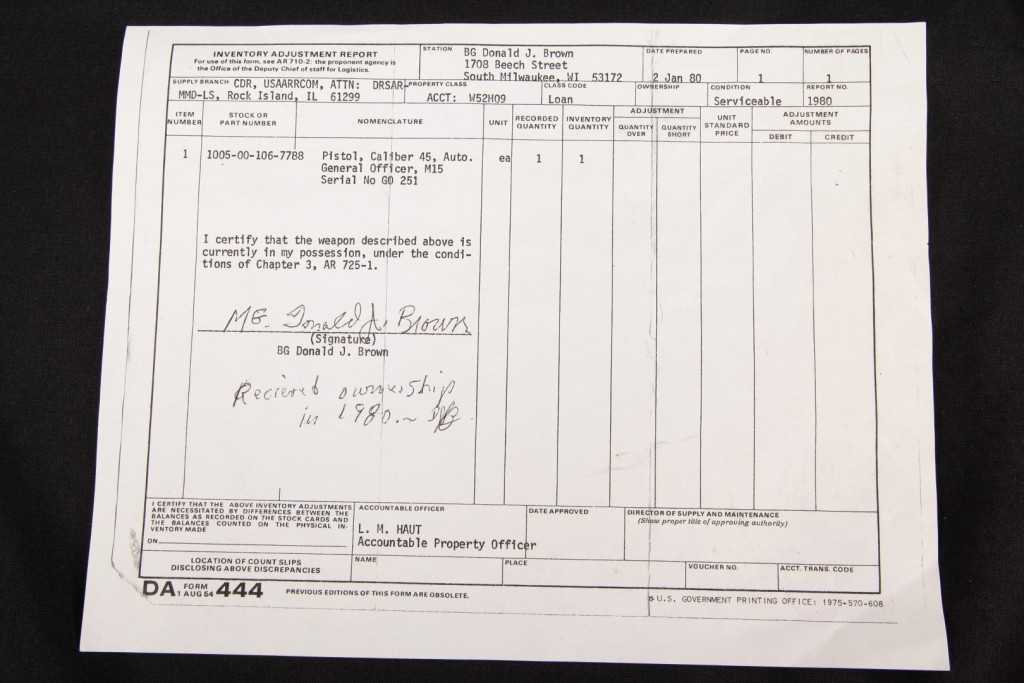 INVENTORY ADJUSTMENT REPORT
For use of this form, see AR 710-2: the proponent agency is
the Office of the Deputy Chief of staff for Logistics.
STATION
BG Donald J. Brown
1708 Beech Street
South Milwaukee, WI 53172
DATE PREPARED
2 Jan 80
PAGE NO.
1
NUMBER OF PAGES
1
SUPPLY BRANCH CDR, USAARRCOM, ATTN: DRSAR-
MMD-LS, Rock Island, IL 61299
PROPERTY CLASS
ACCT: W52H09
CLASS CODE
Loan
OWNERSHIP
CONDITION
Serviceable
REPORT NO.
1980
ITEM
NUMBER
STOCK OR
PART NUMBER
NOMENCLATURE
UNIT
RECORDED
QUANTITY
INVENTORY
QUANTITY
ADJUSTMENT
QUANTITY
OVER
QUANTITY
SHORT
UNIT
STANDARD
PRICE
ADJUSTMENT
AMOUNTS
DEBIT
CREDIT
1 1005-00-106-7788 Pistol, Caliber 45, Auto. ea 1 1
General Officer, M15
Serial No GO 251
I certify that the weapon described above is
currently in my possession, under the condi-
tions of Chapter 3, AR 725-1.
MG. Donald J. Brown
(Signature)
BG Donald J. Brown
Recieved ownership
in 1980.~ DJB
I CERTIFY THAT THE ABOVE INVENTORY ADJUSTMENTS
ARE NECESSITATED BY DIFFERENCES BETWEEN THE
BALANCES AS RECORDED ON THE STOCK CARDS AND
THE BALANCES COUNTED ON THE PHYSICAL IN-
VENTORY MADE
ON
ACCOUNTABLE OFFICER
L. M. HAUT
Accountable Property Officer
DATE APPROVED
DIRECTOR OF SUPPLY AND MAINTENANCE
(Show proper title of approving authority)
LOCATION OF COUNT SLIPS
DISCLOSING ABOVE DISCREPANCIES
NAME
PLACE
VOUCHER NO.
ACCT. TRANS. CODE
DA FORM 1 AUG 64 444
PREVIOUS EDITIONS OF THIS FORM ARE OBSOLETE.
U.S. GOVERNMENT PRINTING OFFICE: 1975-570-608